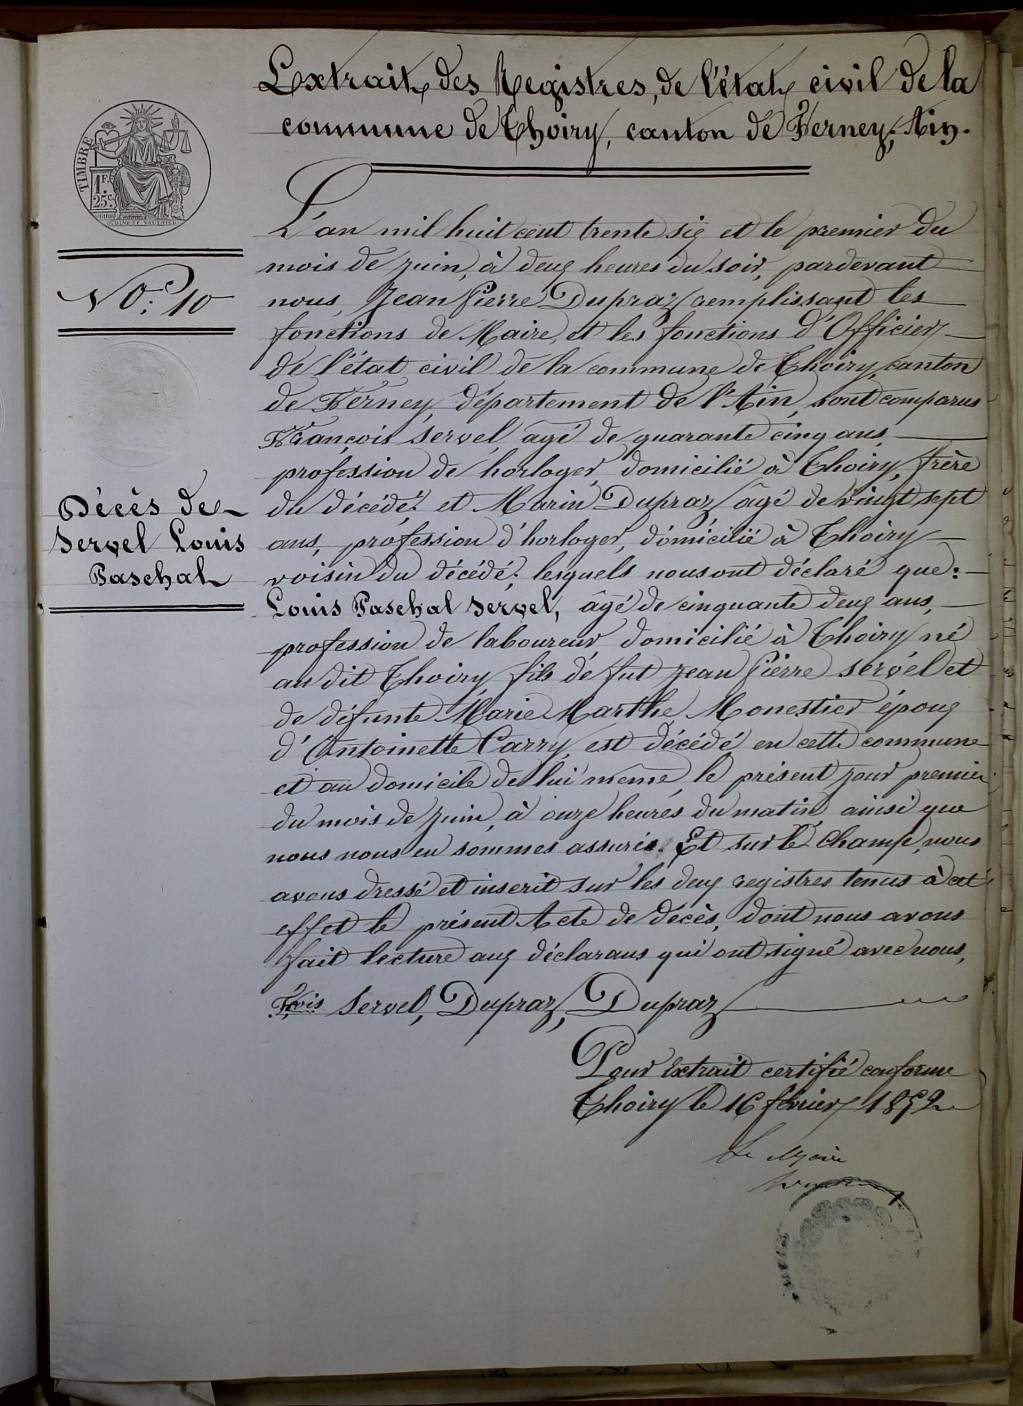 Extrait des Registres, de l'état civil de la
commune de Thoiry, canton de Ferney, Ain.
TIMBRE
1F.
25c.
No: 10
Décès de
Servel Louis
Paschal
L'an mil huit cent trente six et le premier du
mois de juin, à deux heures du soir, pardevant
nous, Jean Pierre Dupraz remplissant les
fonctions de Maire, et les fonctions d'Officier
de l'état civil de la commune de Thoiry, canton
de Ferney, département de l'Ain, sont comparus
François Servel, âgé de quarante cinq ans,
profession de horloger, domicilié à Thoiry, frère
du décédé: et Marin Dupraz âgé de vingt sept
ans, profession d'horloger, domicilié à Thoiry
voisin du décédé; lesquels nous ont déclaré que:
Louis Paschal Servel, âgé de cinquante deux ans,
profession de laboureur domicilié à Thoiry né
au dit Thoiry fils de fut Jean Pierre Servel et
de défunte Marie Marthe Monestier époux
d'Antoinette Carry, est décédé en cette commune
et au domicile de lui même, le présent jour premier
du mois de juin, à onze heures du matin, ainsi que
nous nous en sommes assurés. Et sur le champ, nous
avons dressé et inscrit sur les deux registres tenus à cet
effet le présent Acte de décès, dont nous avons
fait lecture aux déclarans qui ont signé avec nous,
Fçois Servel, Dupraz, Dupraz
Pour Extrait certifié conforme
Thoiry le 16 février 1852
Le Maire